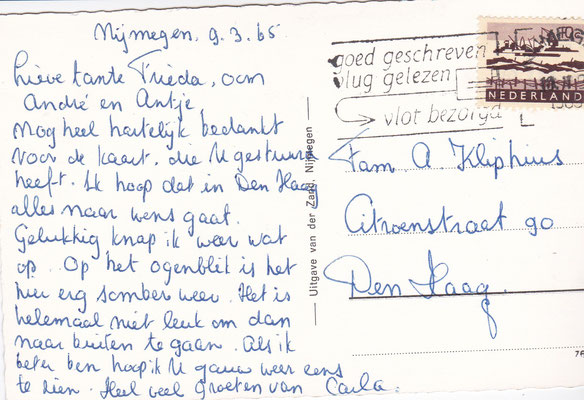 Nijmegen. 9.3.65
Lieve tante Frieda, oom
André en Antje,
Nog heel hartelijk bedankt
voor de kaart, die U gestuurd
heeft. Ik hoop dat in Den Haag
alles naar wens gaat.
Gelukkig knap ik weer wat
op. Op het ogenblik is het
hier erg somber weer. Het is
helemaal niet leuk om dan
naar buiten te gaan. Als ik
beter ben hoop ik U gauw weer eens
te zien. Heel veel groeten van Carla.
Uitgave van der Zand, Nijmegen
goed geschreven
vlug gelezen
vlot bezorgd
NEDERLAND
Fam A. Kliphuis
Citroenstraat 90
Den Haag.
76